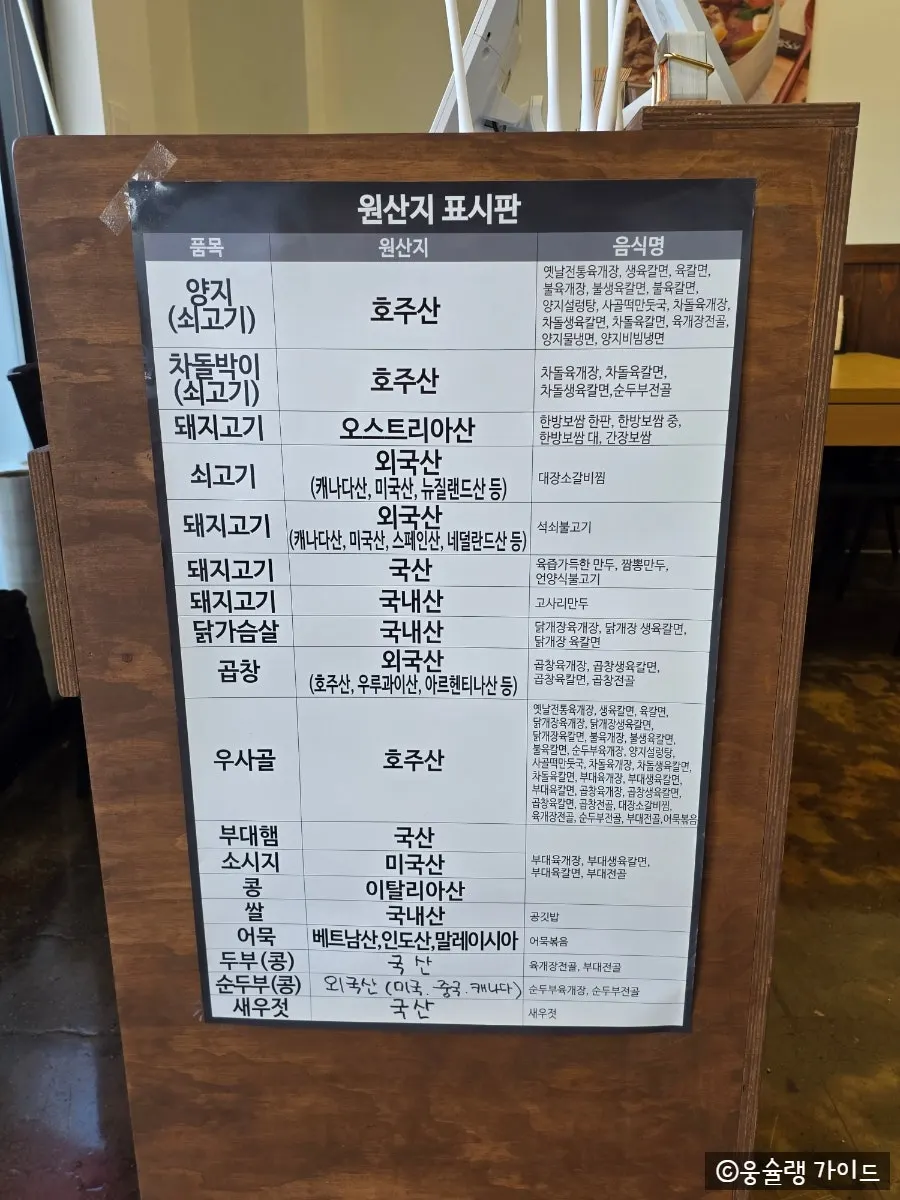 원산지 표시판
품목 원산지 음식명
양지
(쇠고기)
호주산
옛날전통육개장, 생육칼면, 육칼면,
불육개장, 불생육칼면, 불육칼면,
양지설렁탕, 사골떡만둣국, 차돌육개장,
차돌생육칼면, 차돌육칼면, 육개장전골,
양지물냉면, 양지비빔냉면
차돌박이
(쇠고기)
호주산
차돌육개장, 차돌육칼면,
차돌생육칼면,순두부전골
돼지고기
오스트리아산
한방보쌈 한판, 한방보쌈 중,
한방보쌈 대, 간장보쌈
쇠고기
외국산
(캐나다산, 미국산, 뉴질랜드산 등)
대장소갈비찜
돼지고기
외국산
(캐나다산, 미국산, 스페인산, 네덜란드산 등)
석쇠불고기
돼지고기
국산
육즙가득한 만두, 짬뽕만두,
언양식불고기
돼지고기
국내산
고사리만두
닭가슴살
국내산
닭개장육개장, 닭개장 생육칼면,
닭개장 육칼면
곱창
외국산
(호주산, 우루과이산, 아르헨티나산 등)
곱창육개장, 곱창생육칼면,
곱창육칼면, 곱창전골
우사골
호주산
옛날전통육개장, 생육칼면, 육칼면,
닭개장육개장, 닭개장생육칼면,
닭개장육칼면, 불육개장, 불생육칼면,
불육칼면, 순두부육개장, 양지설렁탕,
사골떡만둣국, 차돌육개장, 차돌생육칼면,
차돌육칼면, 부대육개장, 부대생육칼면,
부대육칼면, 곱창육개장, 곱창생육칼면,
곱창육칼면, 곱창전골, 대장소갈비찜,
육개장전골, 순두부전골, 부대전골,어묵볶음
부대햄 국산
소시지 미국산
콩 이탈리아산
부대육개장, 부대생육칼면,
부대육칼면, 부대전골
쌀 국내산 공깃밥
어묵 베트남산,인도산,말레이시아 어묵볶음
두부(콩) 국산 육개장전골, 부대전골
순두부(콩) 외국산 (미국.중국.캐나다) 순두부육개장, 순두부전골
새우젓 국산 새우젓
©웅슐랭 가이드